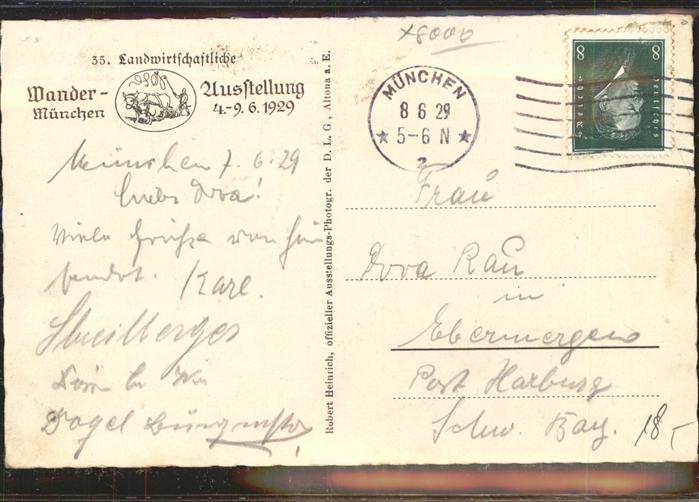 35. Landwirtschaftliche
Wander-
München
Ausstellung
4.-9.6.1929
München 7.6.29
Liebe Dora!
Viele Grüße von hier
sendet. Karl.
Vogel Bürgermstr
Robert Heinrich, offizieller Ausstellungs-Photogr. der D. L. G., Altona a. E.
x8000
MÜNCHEN
8 6 29
★ 5-6 N ★
2
8 8
Deutsches
Reich
Frau
Dora Rau
in
Ebermergen
Post Harburg
Schw. Bay.
18,-